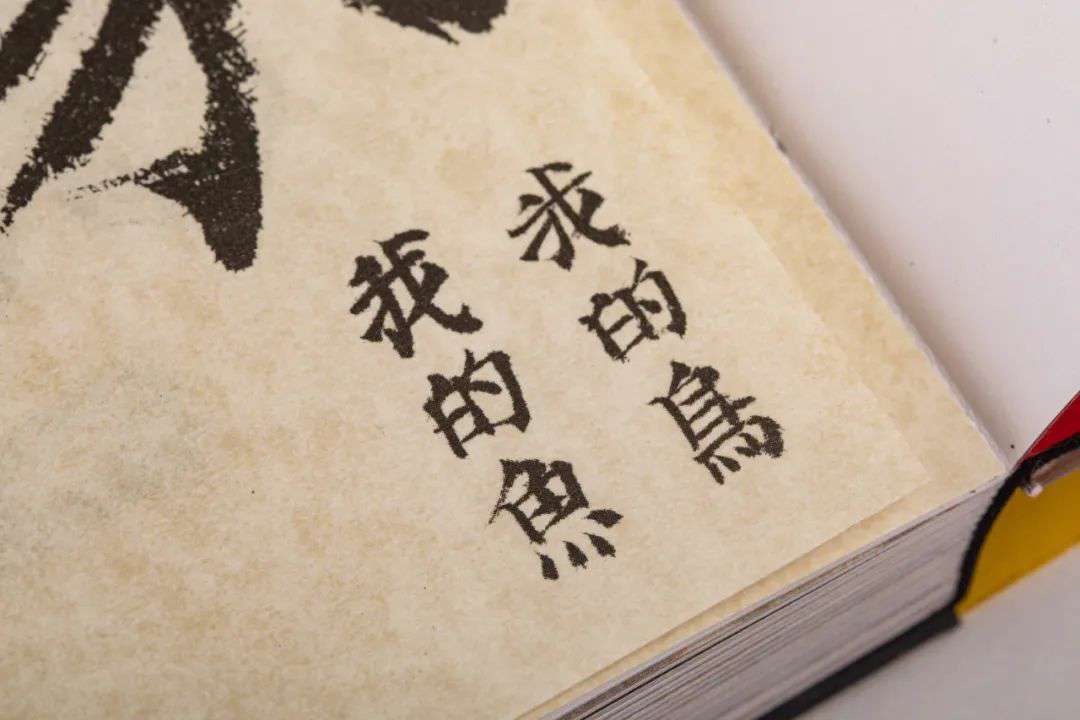 我的鳥
我的魚